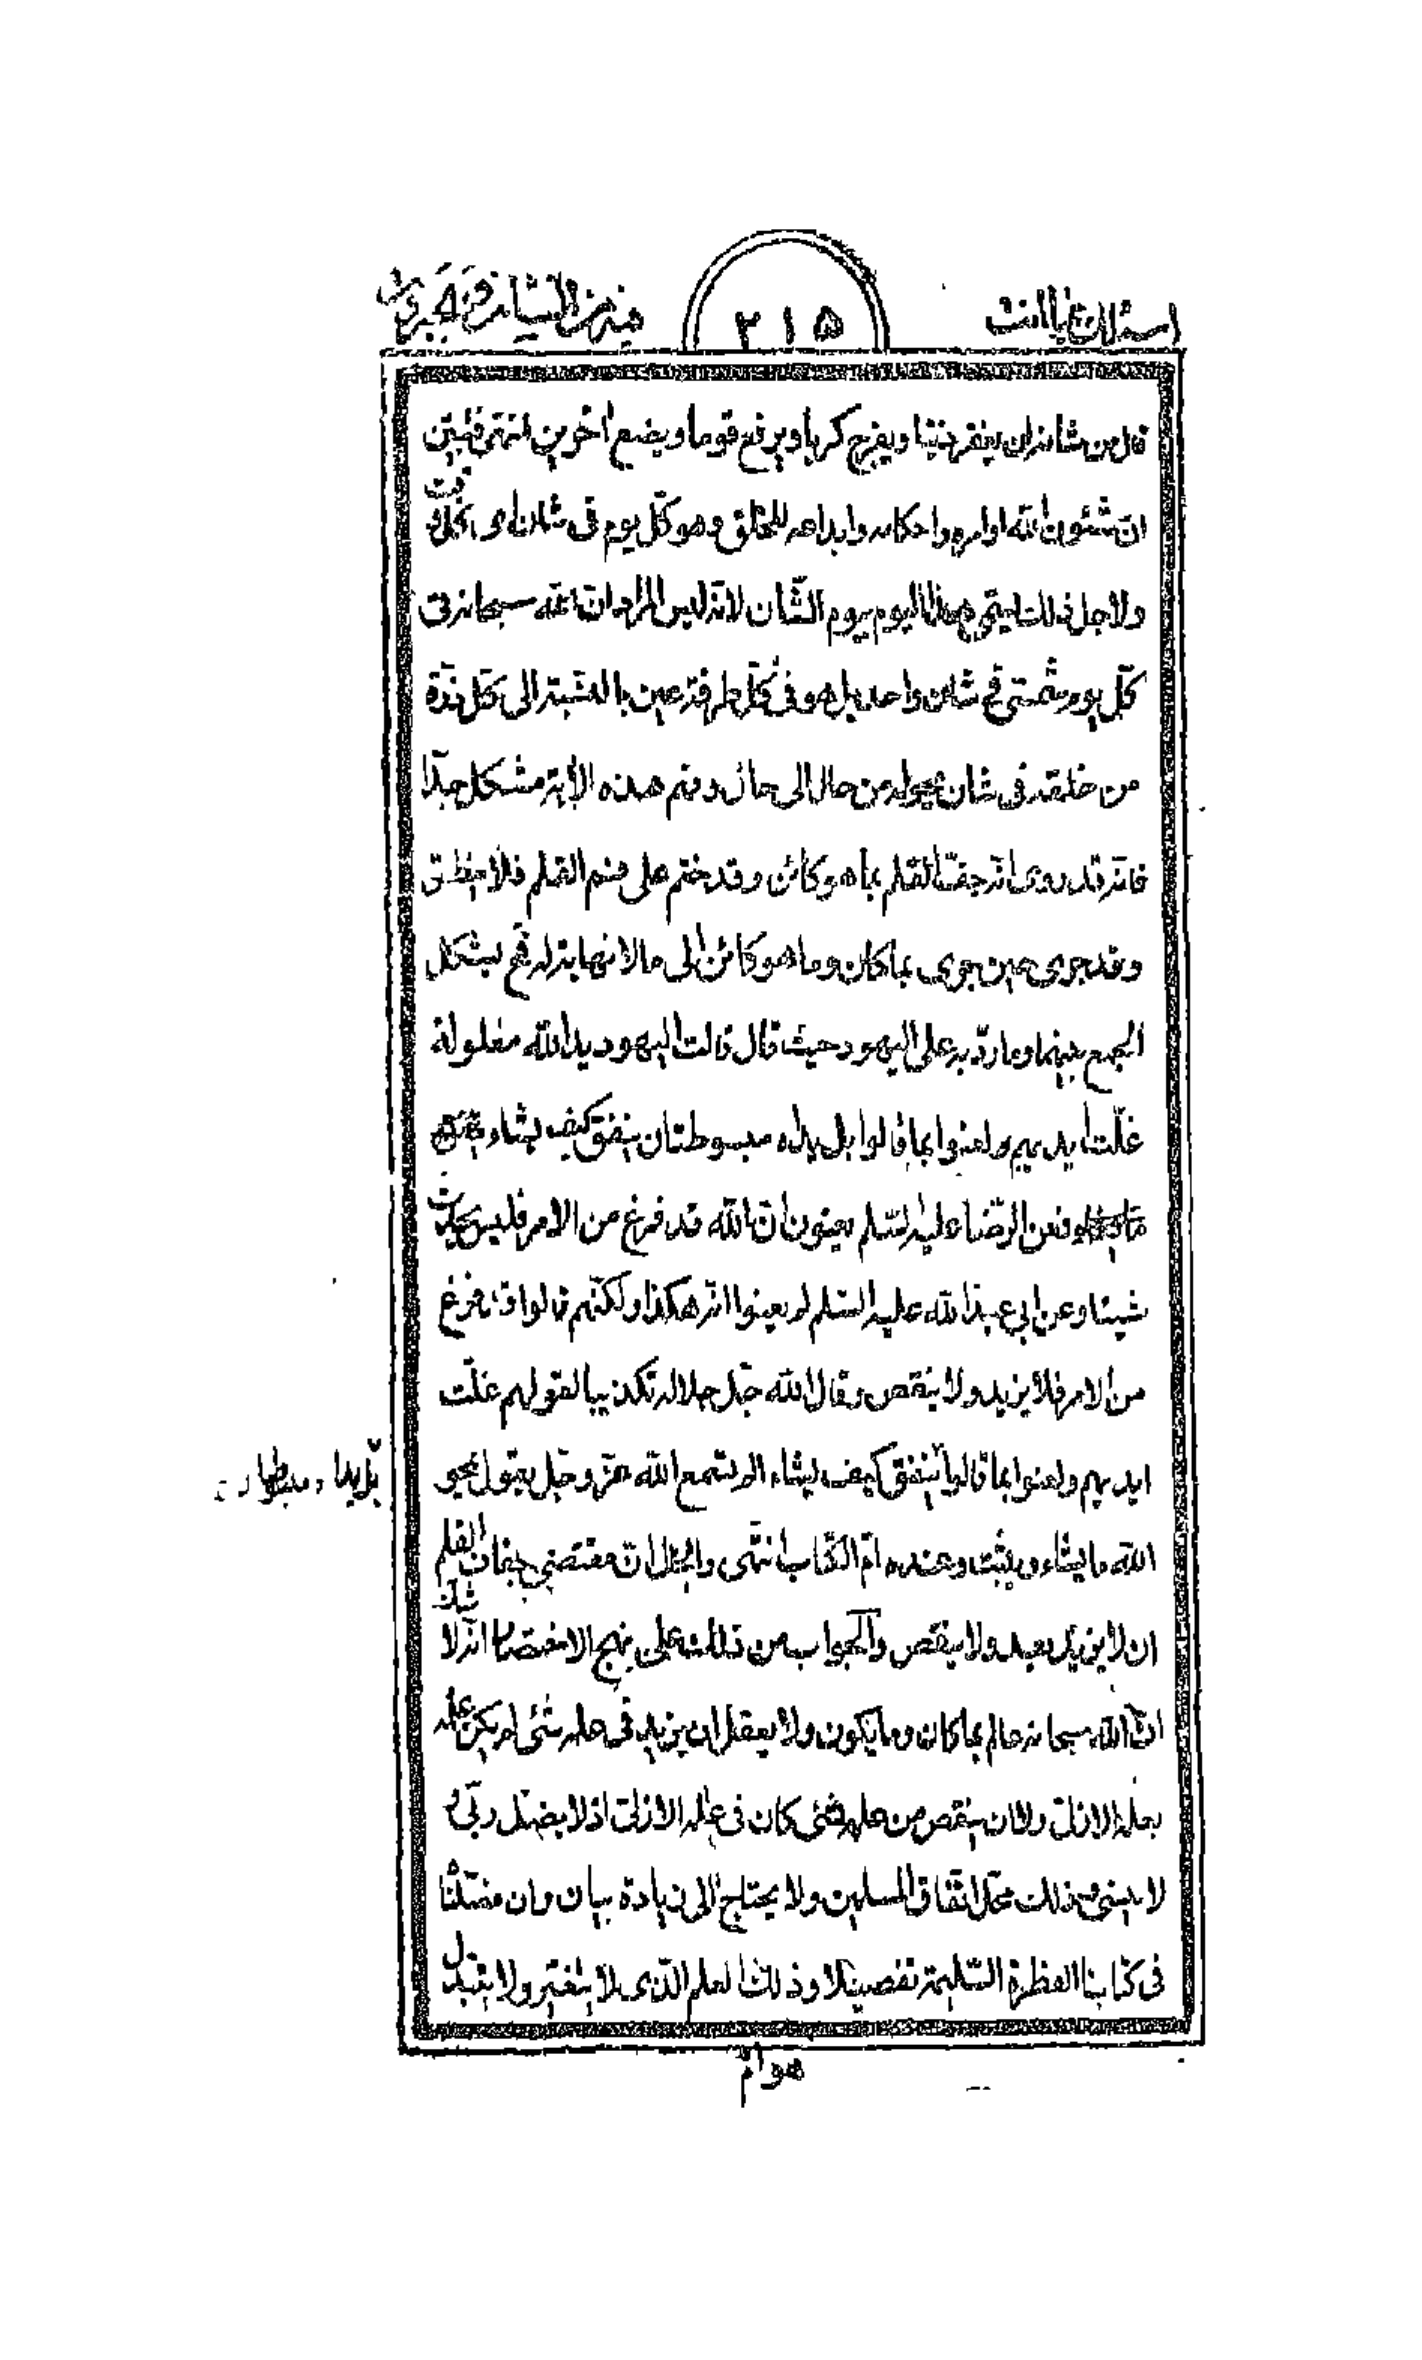 اسئلك بما انت فيه من الشان و الجبروت
٢١٥
قال من شانه ان يغفر ذنبا و يفرج كربا و يرفع قوما و يضع اخرين انتهى فتبين
ان شئون الله اوامره و احكامه و ابداعه للخلق و هو كل يوم فى شان
و لاجل ذلك ليتمى هذا اليوم بيوم الشان لانه ليس المراد ان الله سبحانه فى
كل يوم شمسى فى شان واحد بل هو فى كل طرفة عين بالنسبة الى كل ذرة
من خلقه فى شان يحوله من حال الى حال و فهم هذه الاية مشكل جدا
فانه قد روى انه جف القلم بما هو كائن و قد ختم على فم القلم فلا ينطق
و قد جرى حين جرى بما كان و ما هو كائن الى ما لا نهاية له فح يشكل
الجمع بينهما و ما رد به على اليهود حيث قال قالت اليهود يد الله مغلولة
غلت ايديهم و لعنوا بما قالوا بل يداه مبسوطتان ينفق كيف يشاء
فعن الرضا عليه السلم يعنون ان الله قد فرغ من الامر فليس يحدث
شيئا و عن ابي عبد الله عليه السلم لم يعنوا انه هكذا و لكنهم قالوا قد فرغ
من الامر فلا يزيد و لا ينقص و قال الله جل جلاله تكذيبا لقولهم غلت
ايديهم و لعنوا بما قالوا ينفق كيف يشاء الم تسمع الله عز و جل يقول يمحو
بل يداه مبسوطتان
الله ما يشاء و يثبت و عنده ام الكتاب انتهى و بالجملة ان مقتضى جفاف القلم
ان لا يزيد بعد و لا ينقص و الجواب من ذلك على نهج الاختصار انه لا شك
ان الله سبحانه عالم بما كان و ما يكون و لا يعقل ان يزيد فى علمه شئ لم يكن علمه
بعلمه الازلى و لا ان ينقص من علمه شئ كان فى علمه الازلى اذ لا يضل ربى و
لا ينسى و ذلك محل اتفاق المسلمين و لا يحتاج الى زيادة بيان و ان فصلنا
فى كتابنا الفطرة السليمة تفصيلا و ذلك العلم الذى لا يتغير و لا يتبدل
هو ام